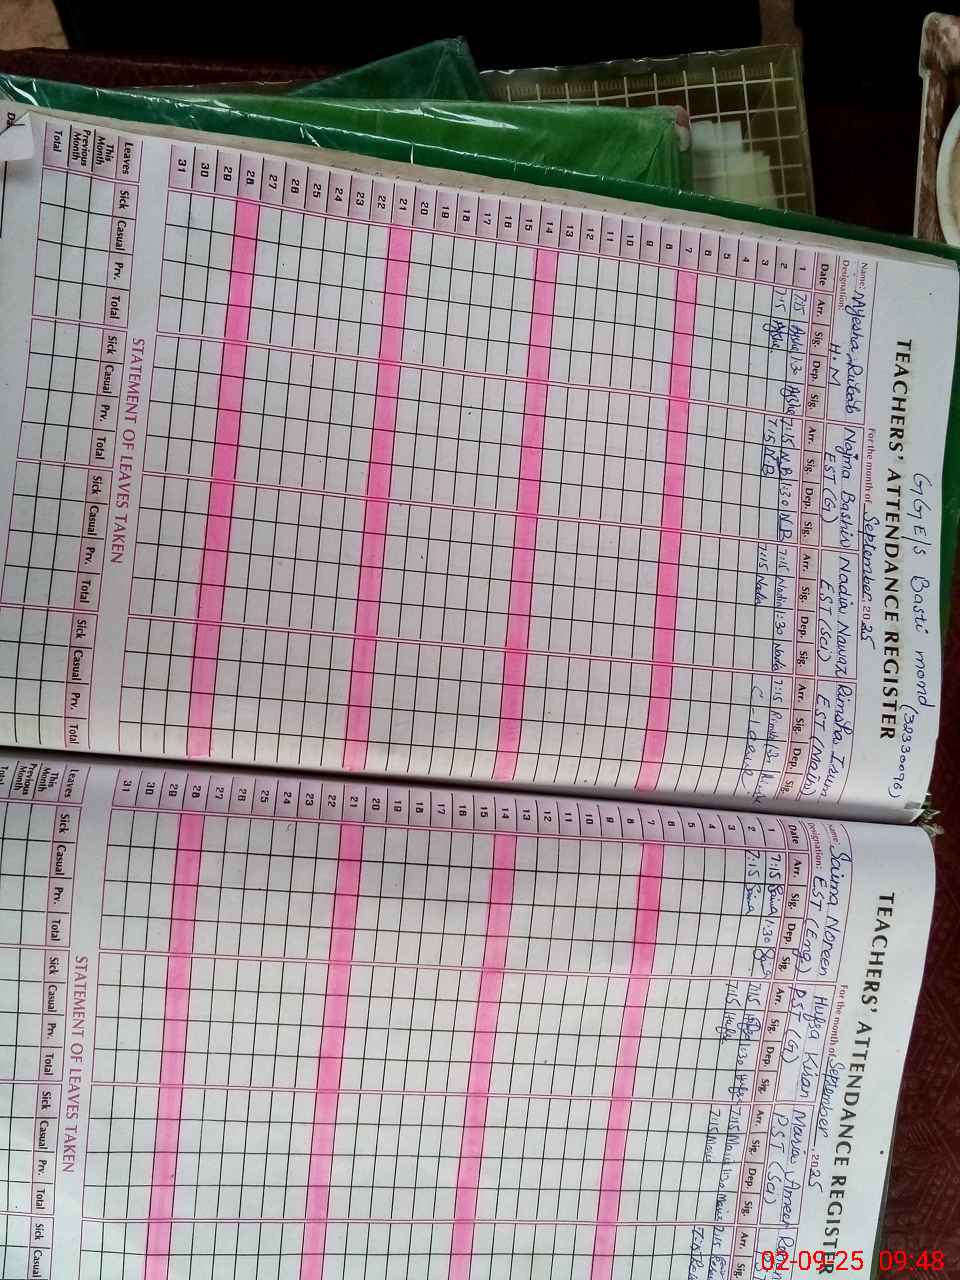 GGE/S Basti momd (32330096)
TEACHERS' ATTENDANCE REGISTER
For the month of September 2025
Name: Ayesha Rubab Najma Bashir Nadia Nawaz Rimsha Irum
Designation: H.M EST (G) EST (Sci) EST (Math)
Date Arr. Sig. Dep. Sig. Arr. Sig. Dep. Sig. Arr. Sig. Dep. Sig. Arr. Sig. Dep. Sig.
1 7:15 Aysha 1:30 Aysha 7:15 N.B 1:30 N.B 7:15 Nadia 1:30 Nadia 7:15 Rimsha
2 7:15 Aysha 7:15 N.B 7:15 Nadia C-leave
3
4
5
6
7
8
9
10
11
12
13
14
15
16
17
18
19
20
21
22
23
24
25
26
27
28
29
30
31
STATEMENT OF LEAVES TAKEN
Leaves Sick Casual Prv. Total Sick Casual Prv. Total Sick Casual Prv. Total Sick Casual Prv. Total
This Month
Previous Month
Total
TEACHERS' ATTENDANCE REGISTER
For the month of September, 2025
Name: Saima Noreen Hufsa Kiran Maria Ameer
Designation: EST (Eng) PST (G) PST (Sci)
Date Arr. Sig. Dep. Sig. Arr. Sig. Dep. Sig. Arr. Sig. Dep. Sig.
1 7:15 Saima 1:30 7:15 Hufsa 1:30 Hufsa 7:15 Maria 1:30 Maria 7:15
2 7:15 Saima 7:15 Hufsa 7:15 Maria 7:15
3
4
5
6
7
8
9
10
11
12
13
14
15
16
17
18
19
20
21
22
23
24
25
26
27
28
29
30
31
STATEMENT OF LEAVES TAKEN
Leaves Sick Casual Prv. Total Sick Casual Prv. Total Sick Casual Prv. Total Sick Casual
This Month
Previous Month
Total
02-09-25 09:48